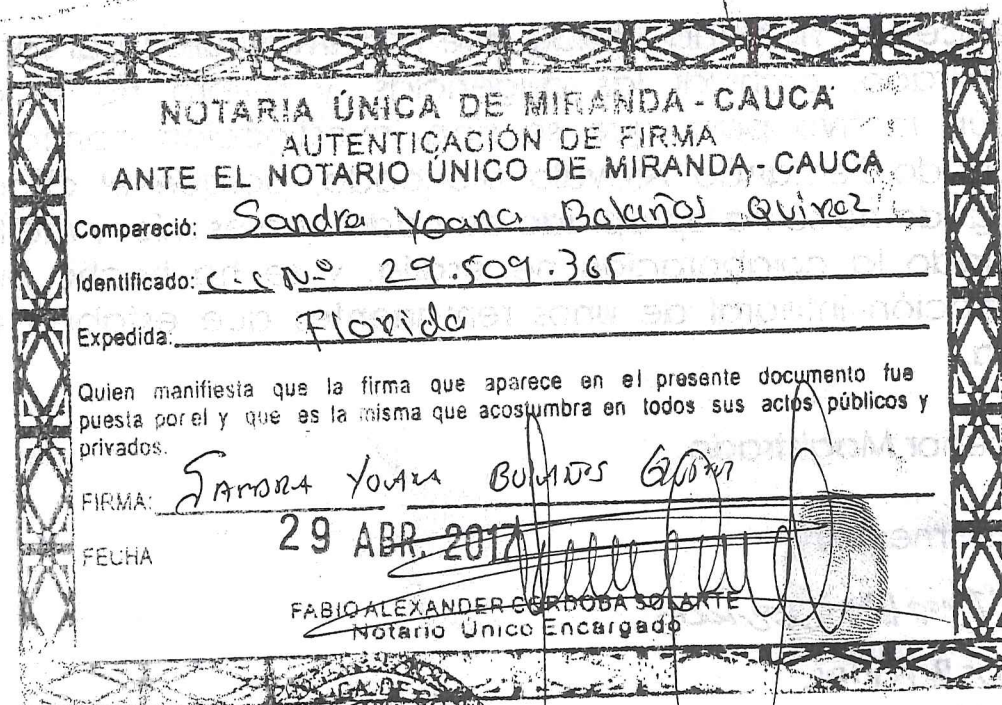 NOTARIA ÚNICA DE MIRANDA - CAUCA
AUTENTICACIÓN DE FIRMA
ANTE EL NOTARIO ÚNICO DE MIRANDA - CAUCA
Compareció: Sandra Yoana Bolaños Quiroz
Identificado: C.C Nº 29.509.365
Expedida: Florida
Quien manifiesta que la firma que aparece en el presente documento fue
puesta por el y que es la misma que acostumbra en todos sus actos públicos y
privados.
FIRMA: SANDRA YOANA BOLAÑOS
FECHA 29 ABR. 2017
FABIO ALEXANDER CORDOBA SOLARTE
Notario Único Encargado